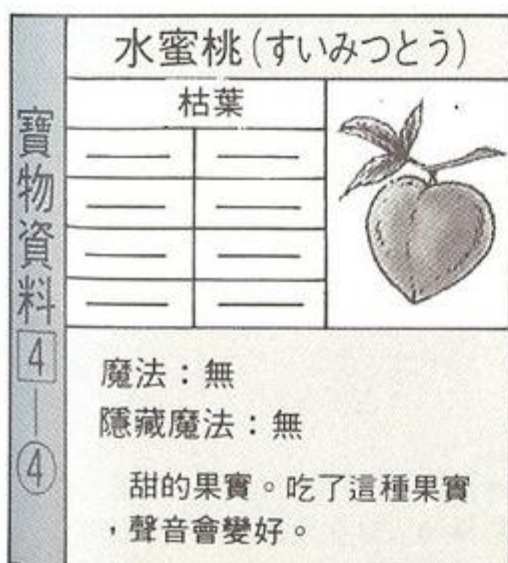 寶物資料4—④
水蜜桃(すいみつとう)
枯葉
—— ——
—— ——
—— ——
—— ——
魔法：無
隱藏魔法：無
甜的果實。吃了這種果實
，聲音會變好。